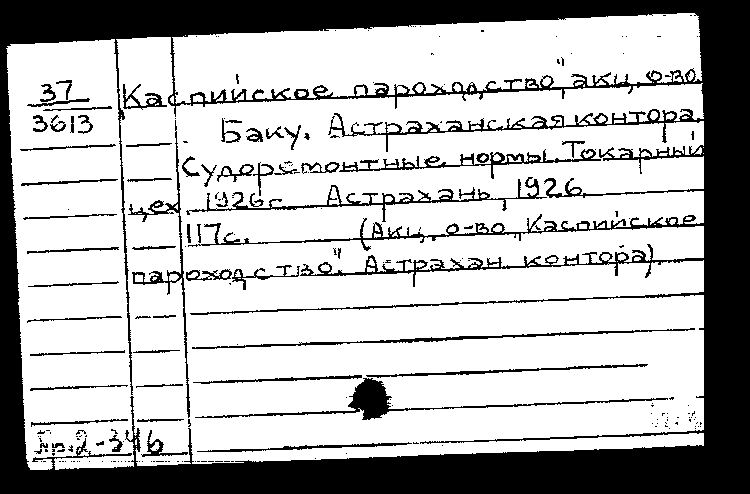 37
3613
„Каспийское пароходство", акц. о-во.
Баку. Астраханская контора.
Судоремонтные нормы. Токарный
цех 1926г. Астрахань, 1926.
117с. (Акц. о-во „Каспийское
пароходство". Астрахан. контора).
Пр.2-346